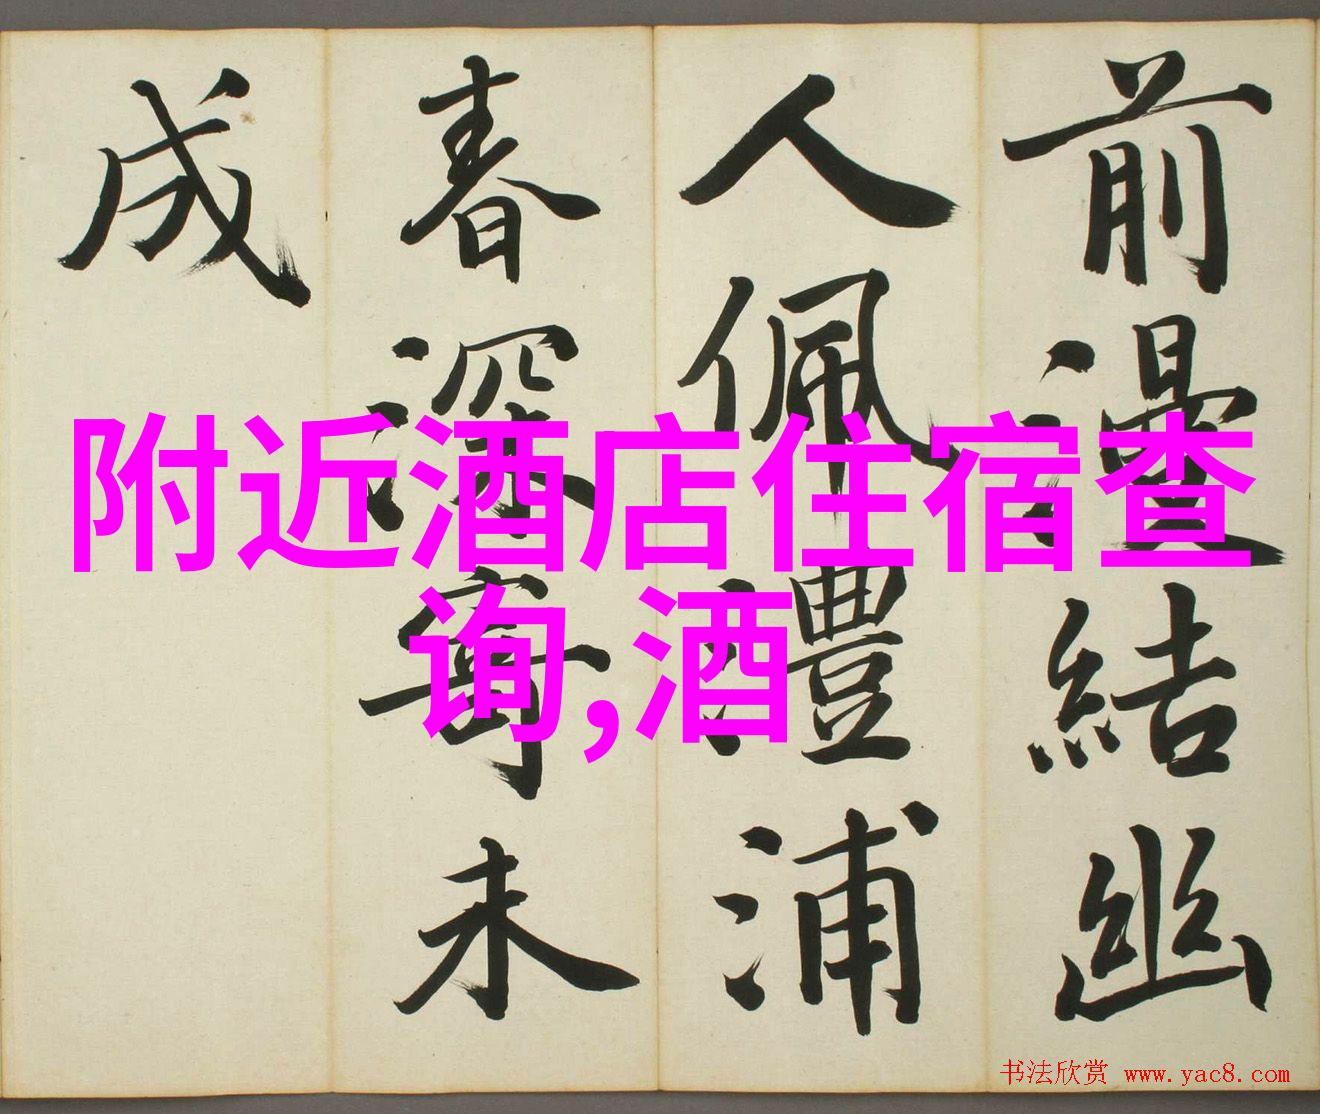 前漫結幽
人佩澧浦
春深寄未
成
附近酒店住宿查
询,酒
书法欣赏 www.yac8.com